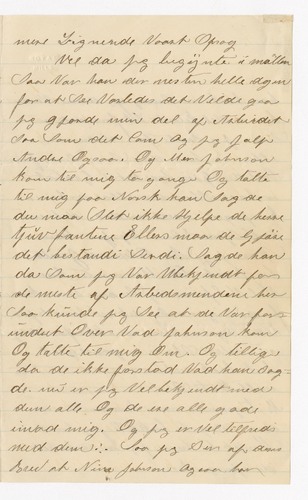 mere Lignende Vaart Sprog
Vel da jeg begÿnte i mallen
Saa Var han der nesten hele dagen
for at See Vorledes det Velde gaa
jeg gjorde min del af Arbeidet
Saa Som det Com Og jeg jalp
Andre Ogsaa. Og Mr Johnson
kom til mig to gange Og talte
til mig paa Norsk han Sagde
du maa Slet ikke Hjelpe de herre
Ellers maa de Gjøre
det bestandi Serdi. Sagde han
da Som jeg Var Ubekjendt for
de meste af Arbeidsmendene her
Saa kunde jeg See at de Var for
undret Over Vad Johnson kom
Og talte til mig Om. Og tillige
da de ikke forstod Vad han Sag-
de. nu er jeg Velbekjendt med
dem alle Og de ere alle gode
imod mig. Og jeg er vel tilfreds
med dem. Saa jeg Ser af dans
Brev at Nina Johnson Ogsaa har